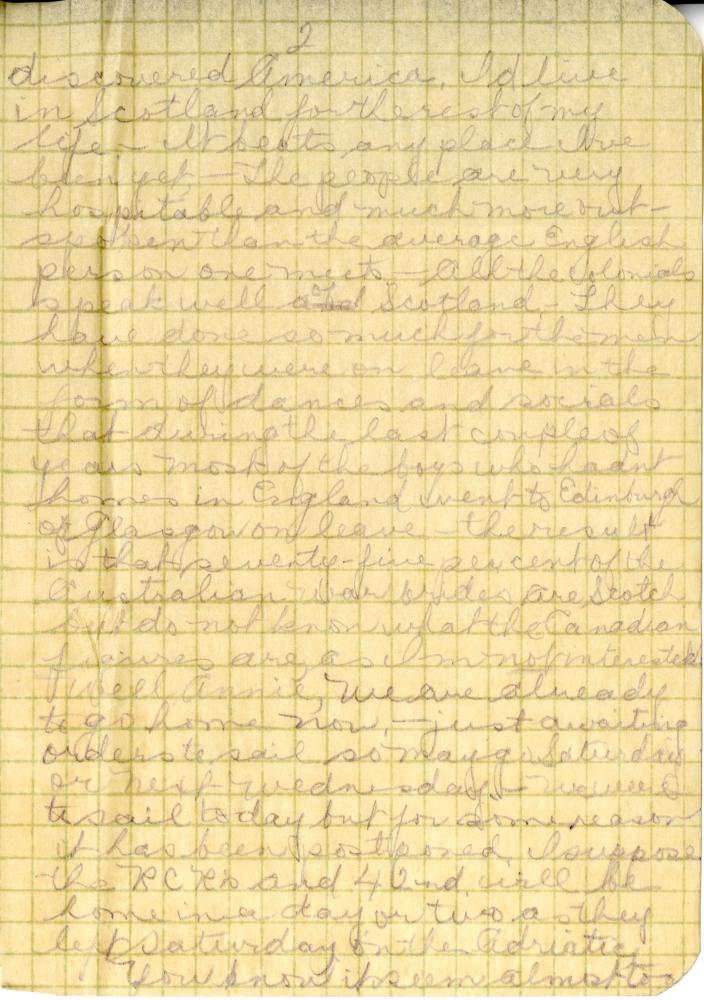 2
discovered America, I'd live
in Scotland for the rest of my
life - It beats any place I've
been yet - The people are very
hospitable and much more out-
spoken than the average English
person one meets - All the Colonials
speak well of Scotland. - They
have done so much for the men
when they were on leave in the
form of dances and socials
that during the last couple of
years most of the boys who hadnt
homes in England went to Edinburgh
or Glasgow on leave - the result
is that seventy-five per cent of the
Australian war brides are Scotch
but do not know what the Canadian
figures are, as I'm not interested.
Well Annie, we are already
to go home now, - just awaiting
orders to sail so may go Saturday
or next Wednesday - we were
to sail today but for some reason
it has been postponed, I suppose
the RCRs and 42nd will be
home in a day or two as they
left Saturday on the Adriatic.
You know it seem almost too